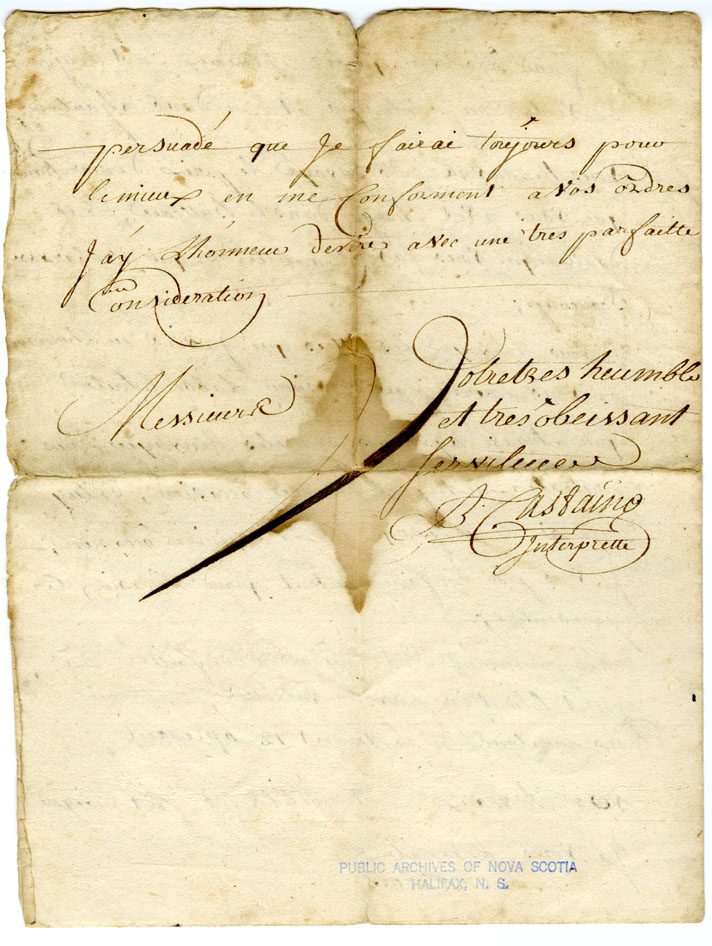 persuadé que Je fairai toujours pour
lemieux en me Conforment a Vos ordres
Jay Lhonneur destre avec une tres parfaitte
Consideration
Messieurs
Votretres heumble
et tres obeissant
Serviteur
Castaing
Interprette
PUBLIC ARCHIVES OF NOVA SCOTIA
HALIFAX, N. S.